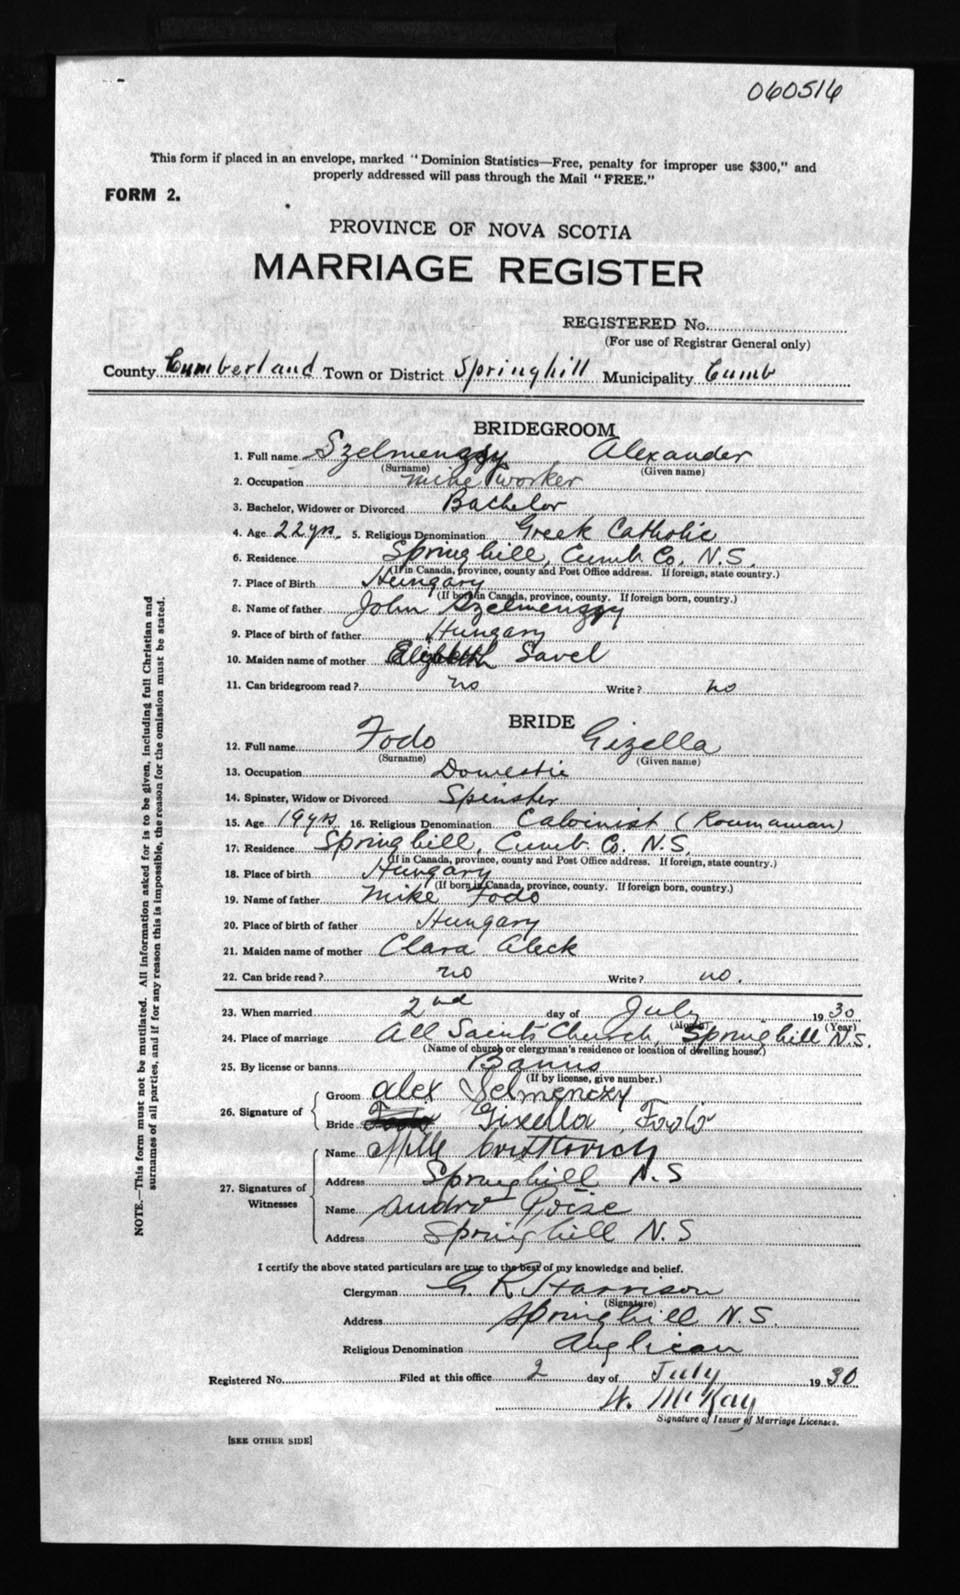 060516
This form if placed in an envelope, marked "Dominion Statistics—Free, penalty for improper use $300," and
properly addressed will pass through the Mail "FREE."
FORM 2.
PROVINCE OF NOVA SCOTIA
MARRIAGE REGISTER
REGISTERED No.
(For use of Registrar General only)
County Cumberland Town or District Springhill Municipality Cumb
BRIDEGROOM
1. Full name Szelmenzy Alexander
(Surname) (Given name)
2. Occupation mine worker
3. Bachelor, Widower or Divorced Bachelor
4. Age 22 yrs. 5. Religious Denomination Greek Catholic
6. Residence Springhill, Cumb. Co. N.S.
(If in Canada, province, county and Post Office address. If foreign, state country.)
7. Place of Birth Hungary
(If born in Canada, province, county. If foreign born, country.)
8. Name of father John Szelmenzy
9. Place of birth of father Hungary
10. Maiden name of mother Elizabeth Savel
11. Can bridegroom read? no Write? no
BRIDE
12. Full name Fodo Gizella
(Surname) (Given name)
13. Occupation Domestic
14. Spinster, Widow or Divorced Spinster
15. Age 19 yrs 16. Religious Denomination Calvinist (Roumanian)
17. Residence Springhill, Cumb. Co. N.S.
(If in Canada, province, county and Post Office address. If foreign, state country.)
18. Place of birth Hungary
(If born in Canada, province, county. If foreign born, country.)
19. Name of father Mike Fodo
20. Place of birth of father Hungary
21. Maiden name of mother Clara Aleck
22. Can bride read? no Write? no.
23. When married 2nd day of July 1930
(Month) (Year)
24. Place of marriage All Saints Church, Springhill N.S.
(Name of church or clergyman's residence or location of dwelling house.)
25. By license or banns Banns
(If by license, give number.)
26. Signature of
Groom Alex Selmenczy
Bride Gizella Fodo
27. Signatures of Witnesses
Name
Address Springhill N.S
Name Andro
Address Springhill N.S
I certify the above stated particulars are true to the best of my knowledge and belief.
Clergyman G. R. Harrison
(Signature)
Address Springhill N.S.
Religious Denomination Anglican
Registered No. Filed at this office 2 day of July 1930
W. McKay
Signature of Issuer of Marriage Licenses.
[SEE OTHER SIDE]
NOTE.—This form must not be mutilated. All information asked for is to be given, including full Christian and
surnames of all parties, and if for any reason this is impossible, the reason for the omission must be stated.